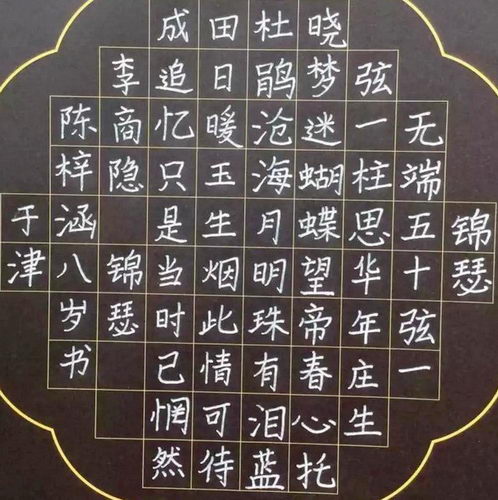 锦瑟
无端五十弦一
弦一柱思华年庄生
晓梦迷蝴蝶望帝春心托
杜鹃沧海月明珠有泪蓝
田日暖玉生烟此情可待
成追忆只是当时已惘然
李商隐 锦瑟
陈梓涵八岁书
于津